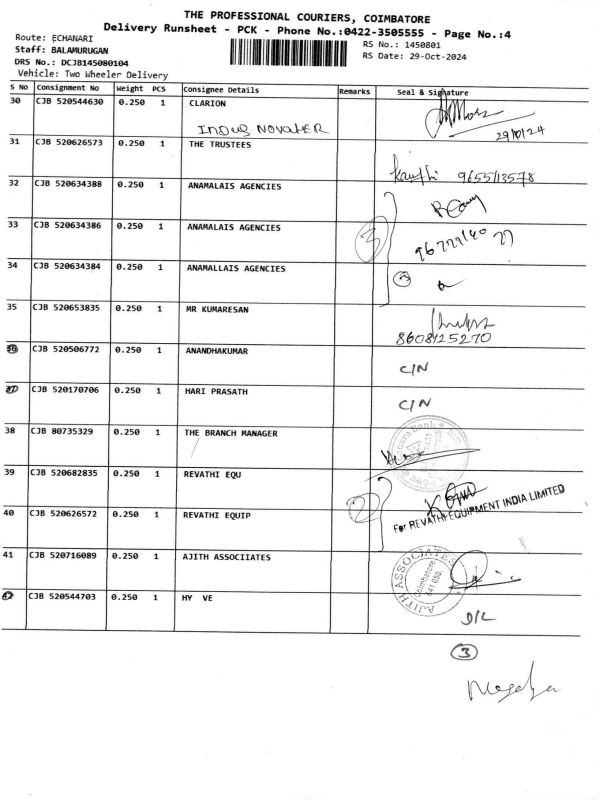 THE PROFESSIONAL COURIERS, COIMBATORE
Delivery Runsheet - PCK - Phone No.:0422-3505555 - Page No.:4
Route: ECHANARI
RS No.: 1450801
Staff: BALAMURUGAN
RS Date: 29-Oct-2024
DRS No.: DCJB145080104
Vehicle: Two Wheeler Delivery
S No Consignment No Weight PCS Consignee Details Remarks Seal & Signature
30 CJB 520544630 0.250 1 CLARION
INDUS NOVATER
29/10/24
31 CJB 520626573 0.250 1 THE TRUSTEES
9655113578
32 CJB 520634388 0.250 1 ANAMALAIS AGENCIES
33 CJB 520634386 0.250 1 ANAMALAIS AGENCIES
3
34 CJB 520634384 0.250 1 ANAMALLAIS AGENCIES
35 CJB 520653835 0.250 1 MR KUMARESAN
8608125270
36 CJB 520506772 0.250 1 ANANDHAKUMAR
C/N
37 CJB 520170706 0.250 1 HARI PRASATH
C/N
38 CJB 80735329 0.250 1 THE BRANCH MANAGER
39 CJB 520682835 0.250 1 REVATHI EQU
2
40 CJB 520626572 0.250 1 REVATHI EQUIP
For REVATHI EQUIPMENT INDIA LIMITED
41 CJB 520716089 0.250 1 AJITH ASSOCIIATES
AJITH ASSOCIATES
Coimbatore
641 050.
42 CJB 520544703 0.250 1 HY VE
D/L
3